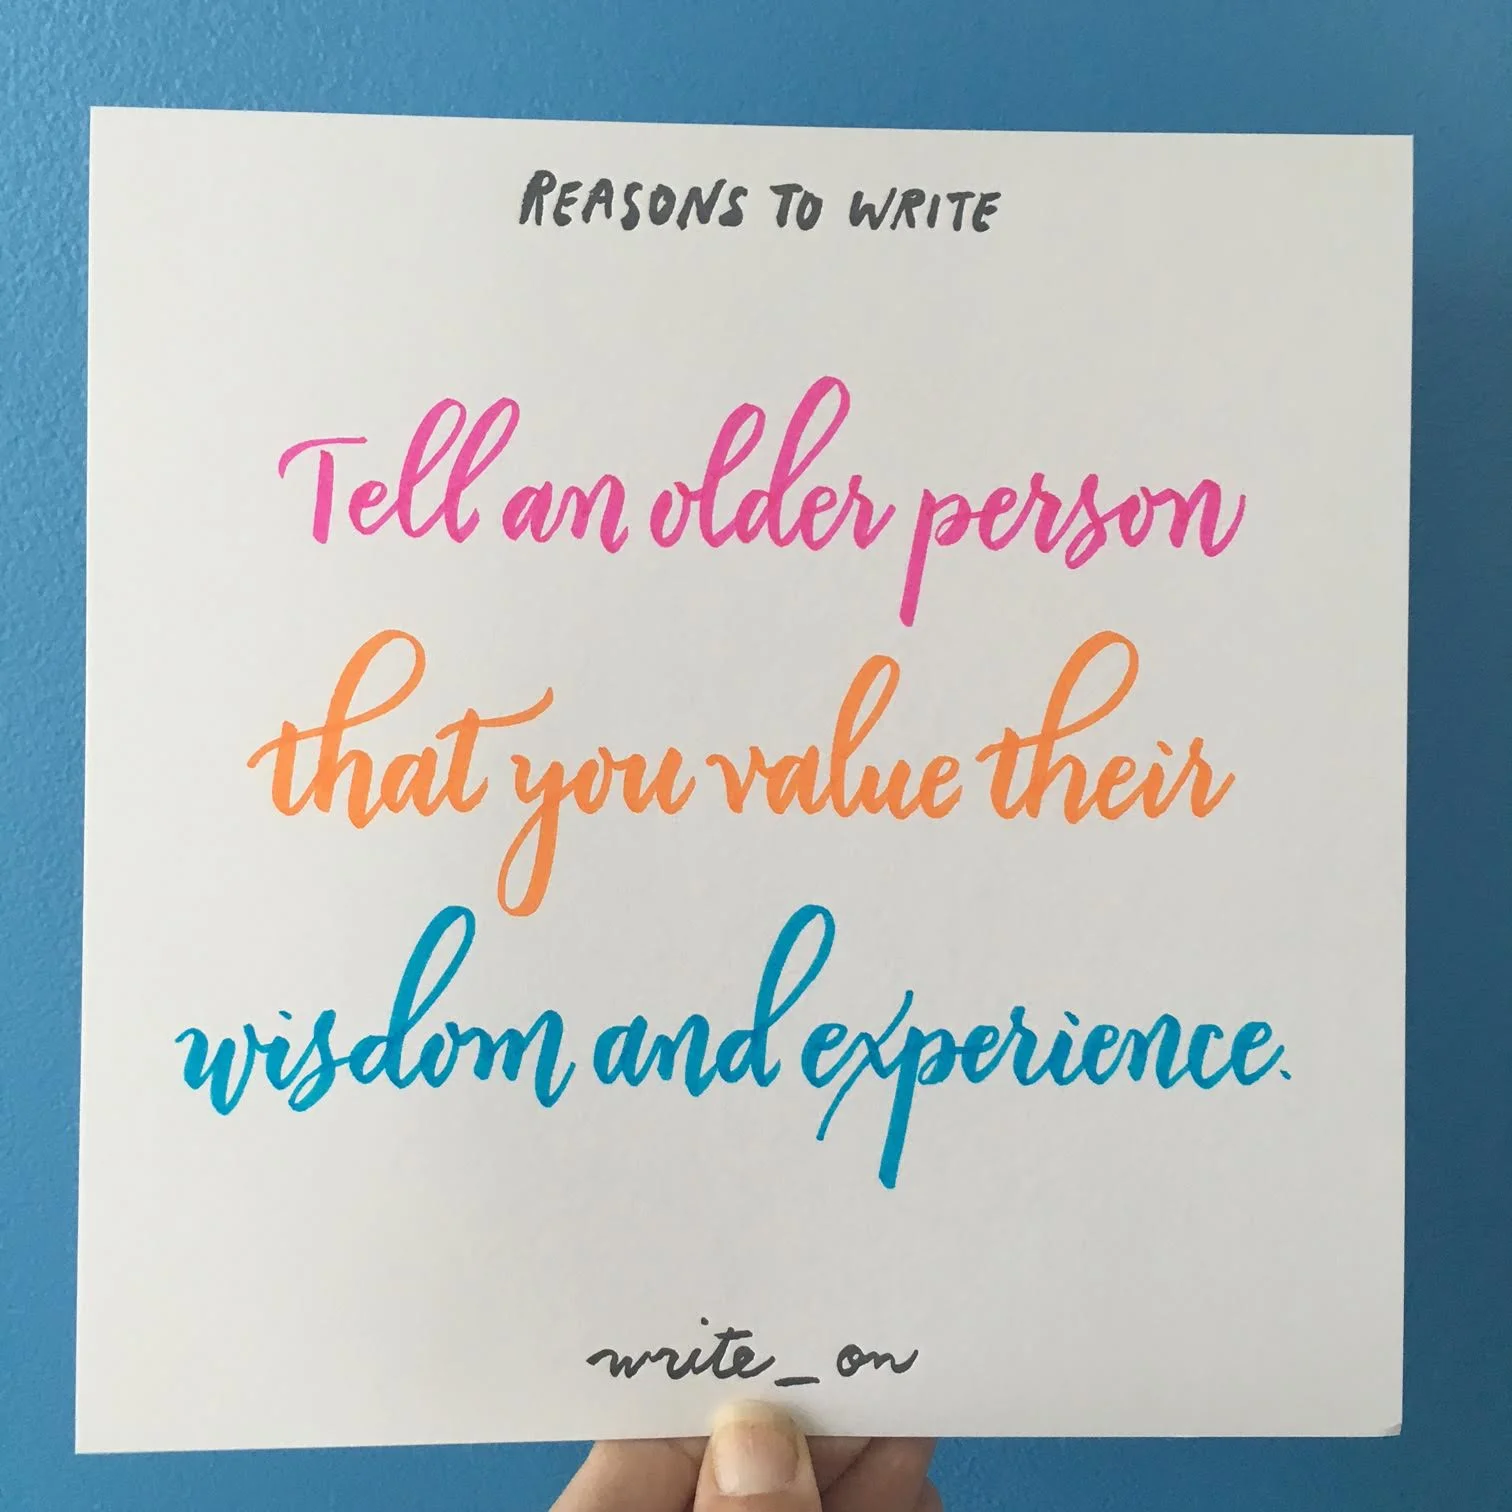 REASONS TO WRITE
Tell an older person
that you value their
wisdom and experience.
write_on